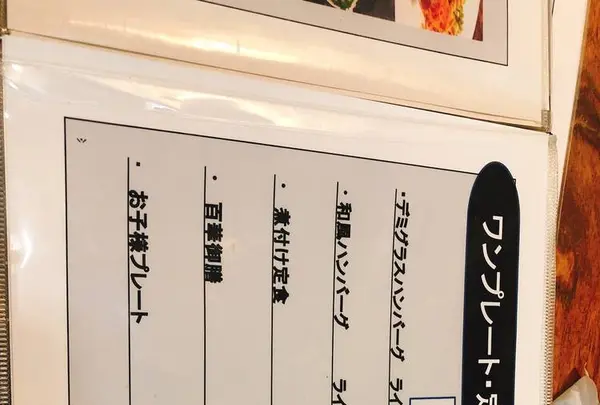 ワンプレート・定
・デミグラスハンバーグ ライ
・和風ハンバーグ ライ
・煮付け定食
・百華御膳
・お子様プレート